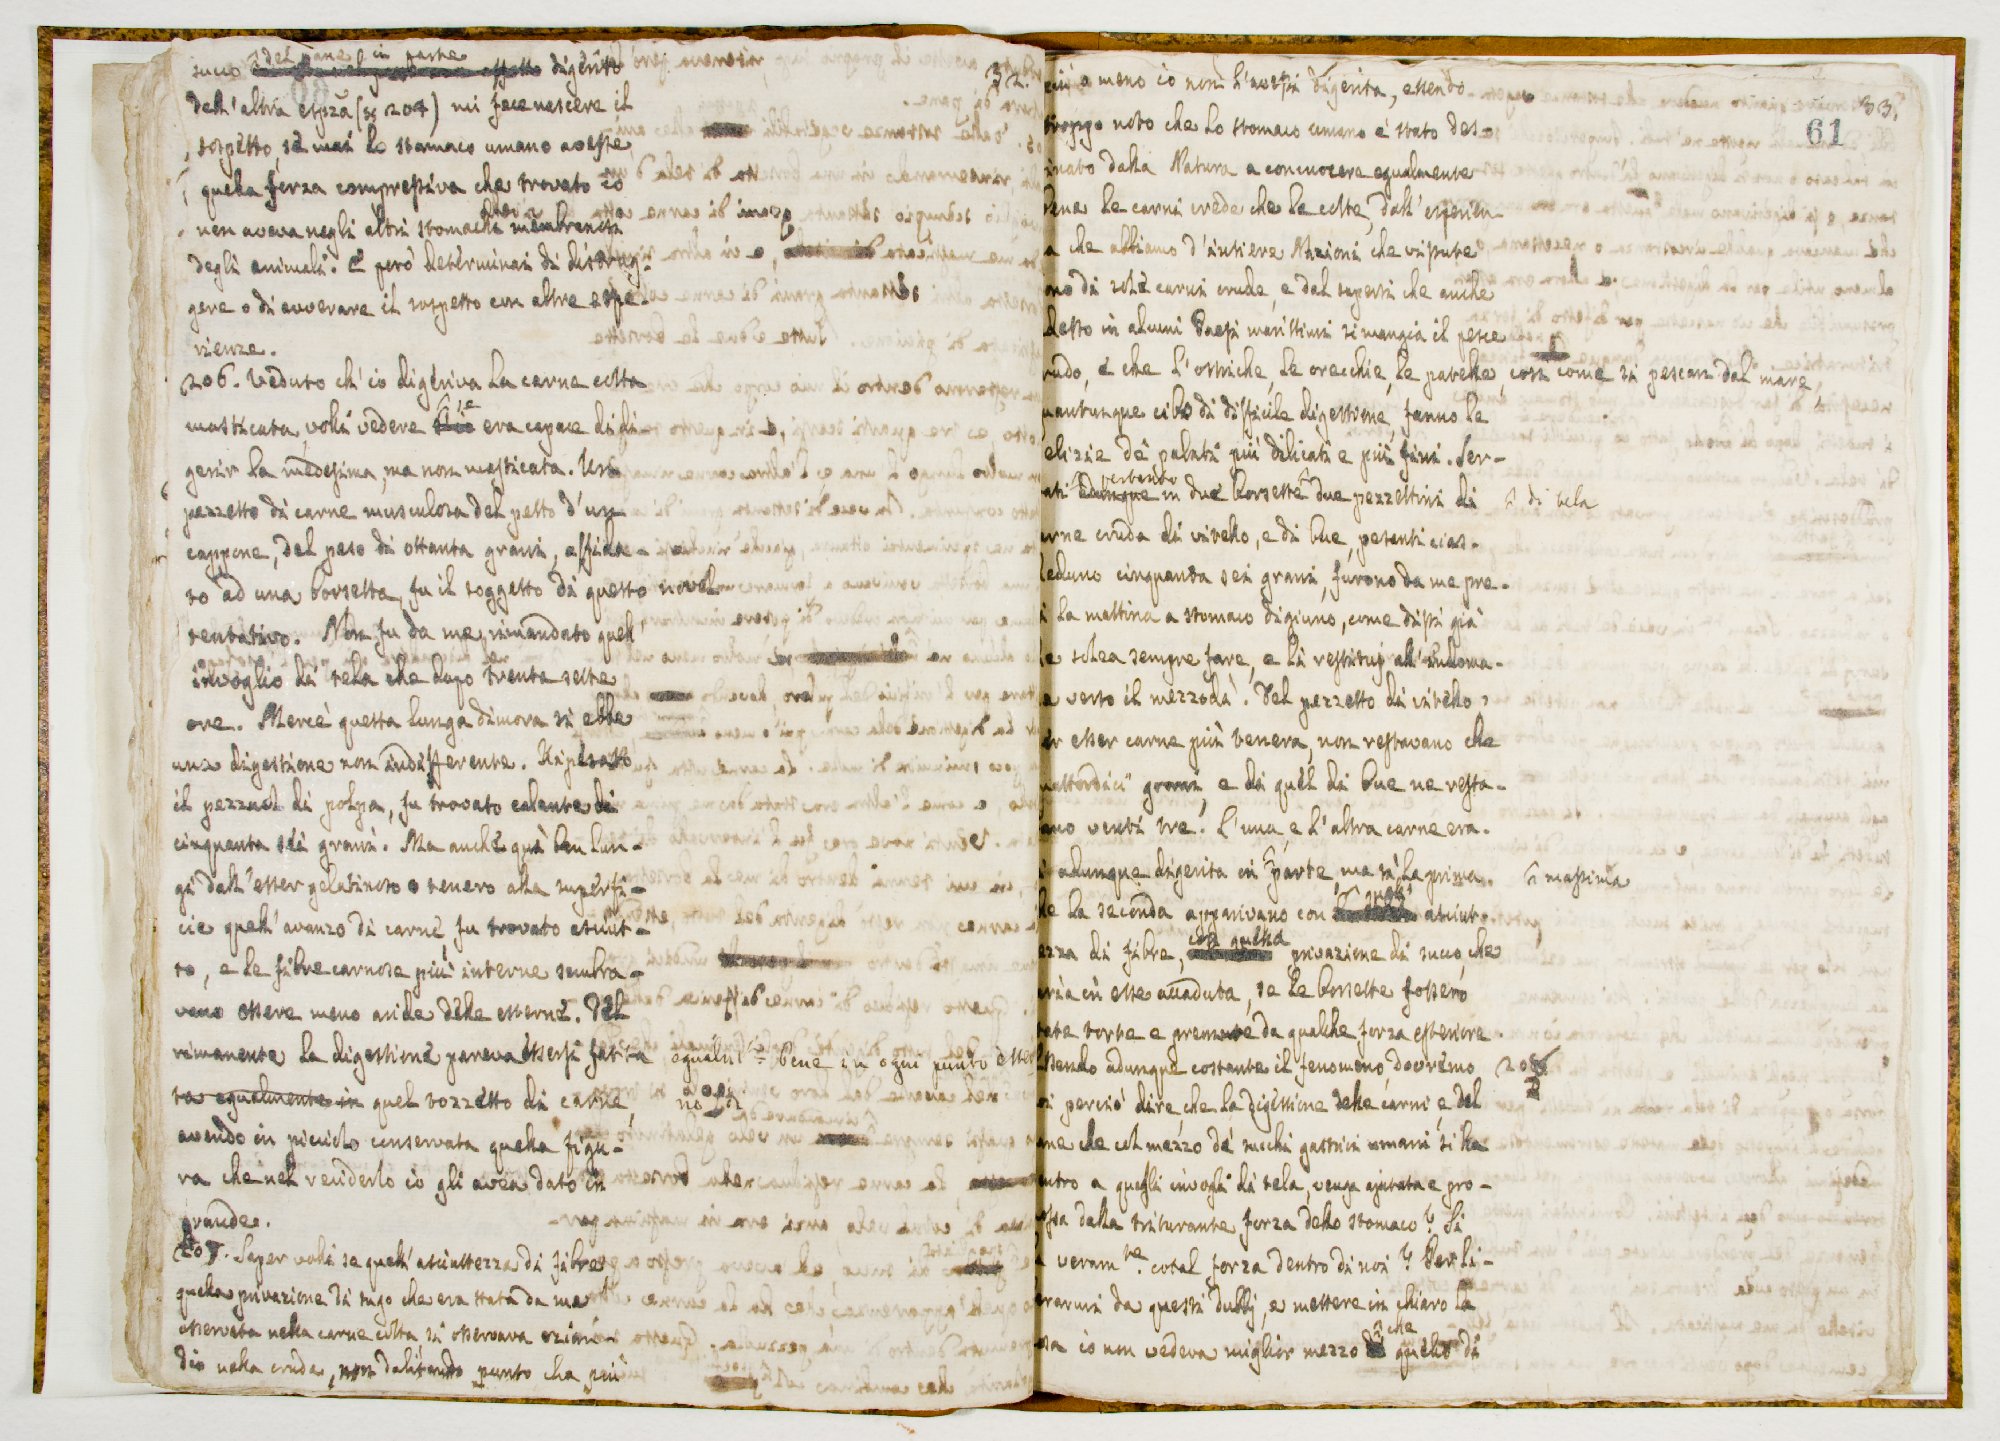 32.
del pane in parte
succo digerito
dell'altra espza (§ 204) mi fece nascere il
sospetto, se mai lo stomaco umano avesse
quella forza compressiva che trovato io
non aveva negli altri stomachi membranosi
degli animali. E però determinai di distrug-
gere o di avverare il sospetto con altre espe-
rienze.
206. Veduto ch'io digeriva la carne cotta
masticata, volli vedere se era capace di di-
gerir la medesima, ma non masticata. Un
pezzetto di carne musculosa del petto d'un
cappone, del peso di ottanta grani, affida-
to ad una borsetta, fu il soggetto di questo novel
tentativo. Non fu da me rimandato quell'
invoglio di tela che dopo trenta sette
ore. Mercè questa lunga dimora si ebbe
una digestione non indifferente. Ripesato
il pezzuol di polpa, fu trovato calante di
cinquanta sei grani. Ma anche quì ben lun-
gi dall'esser gelatinoso o tenero alla superfi-
cie quell'avanzo di carne, fu trovato asciut-
to, e le fibre carnose più interne sembra-
vano essere meno aride delle esterne. Del
rimanente la digestione pareva essersi fatta egualmte bene in ogni punto
ta egualmente in quel tozzetto di carne,
avendo in picciolo conservata quella figu-
ra che nel reciderlo io gli avea dato in
grande.
207. Saper volli se quell'asciuttezza di fibre,
quella privazione di sugo che era stata da me
osservata nella carne cotta si osservava ezian-
dio nella cruda, non dubitando punto che più
33.
61
più o meno io non l'avessi digerita, essendo
troppo noto che lo stomaco umano è stato des-
tinato dalla Natura a concuocere egualmente
bene le carni crude che le cotte, dall'esperien-
a che abbiamo d'intiere Nazioni che vissute
ono di sole carni crude, e dal sapersi che anche
desso in alcuni Paesi marittimi si mangia il pesce
rudo, e che l'ostriche, le orecchie, le patelle, così come si pescan dal mare,
uantunque cibo di difficile digestione, fanno le
elizie de' palati più dilicati e più fini. Ser-
pertanto
ati adunque in due borsette due pezzettini di
di tela
arne cruda di vitello, e di bue, pesenti cias-
eduno cinquanta sei grani, furono da me pre-
i la mattina a stomaco digiuno, come dissi già
e solea sempre fare, e li restituj all'indoma-
e verso il mezzodì. Del pezzetto di vitello,
er esser carne più tenera, non restavano che
uattordici grani, e di quel di bue ne resta-
ano venti tre. L'una e l'altra carne era
adunque digerita in parte, ma sì la prima
massima
he la seconda apparivano con quell' asciut-
ezza di fibre, con quella privazione di succo, che
aria in esse accaduta, se le borsette fossero
tate torte e gremute da qualche forza esteriore.
ssendo adunque costante il fenomeno, dovremo 208
oi perciò dire, che la digestione delle carni, e del
ane che col mezzo de' succhi gastrici umani si ha
entro a quegli invogli di tela, venga ajutata e pro-
ossa dalla triturante forza dello stomaco? Si
à veramte. cotal forza dentro di noi? Per li-
erarmi da questi dubbj, e mettere in chiaro la
osa io non vedeva miglior mezzo che quello di